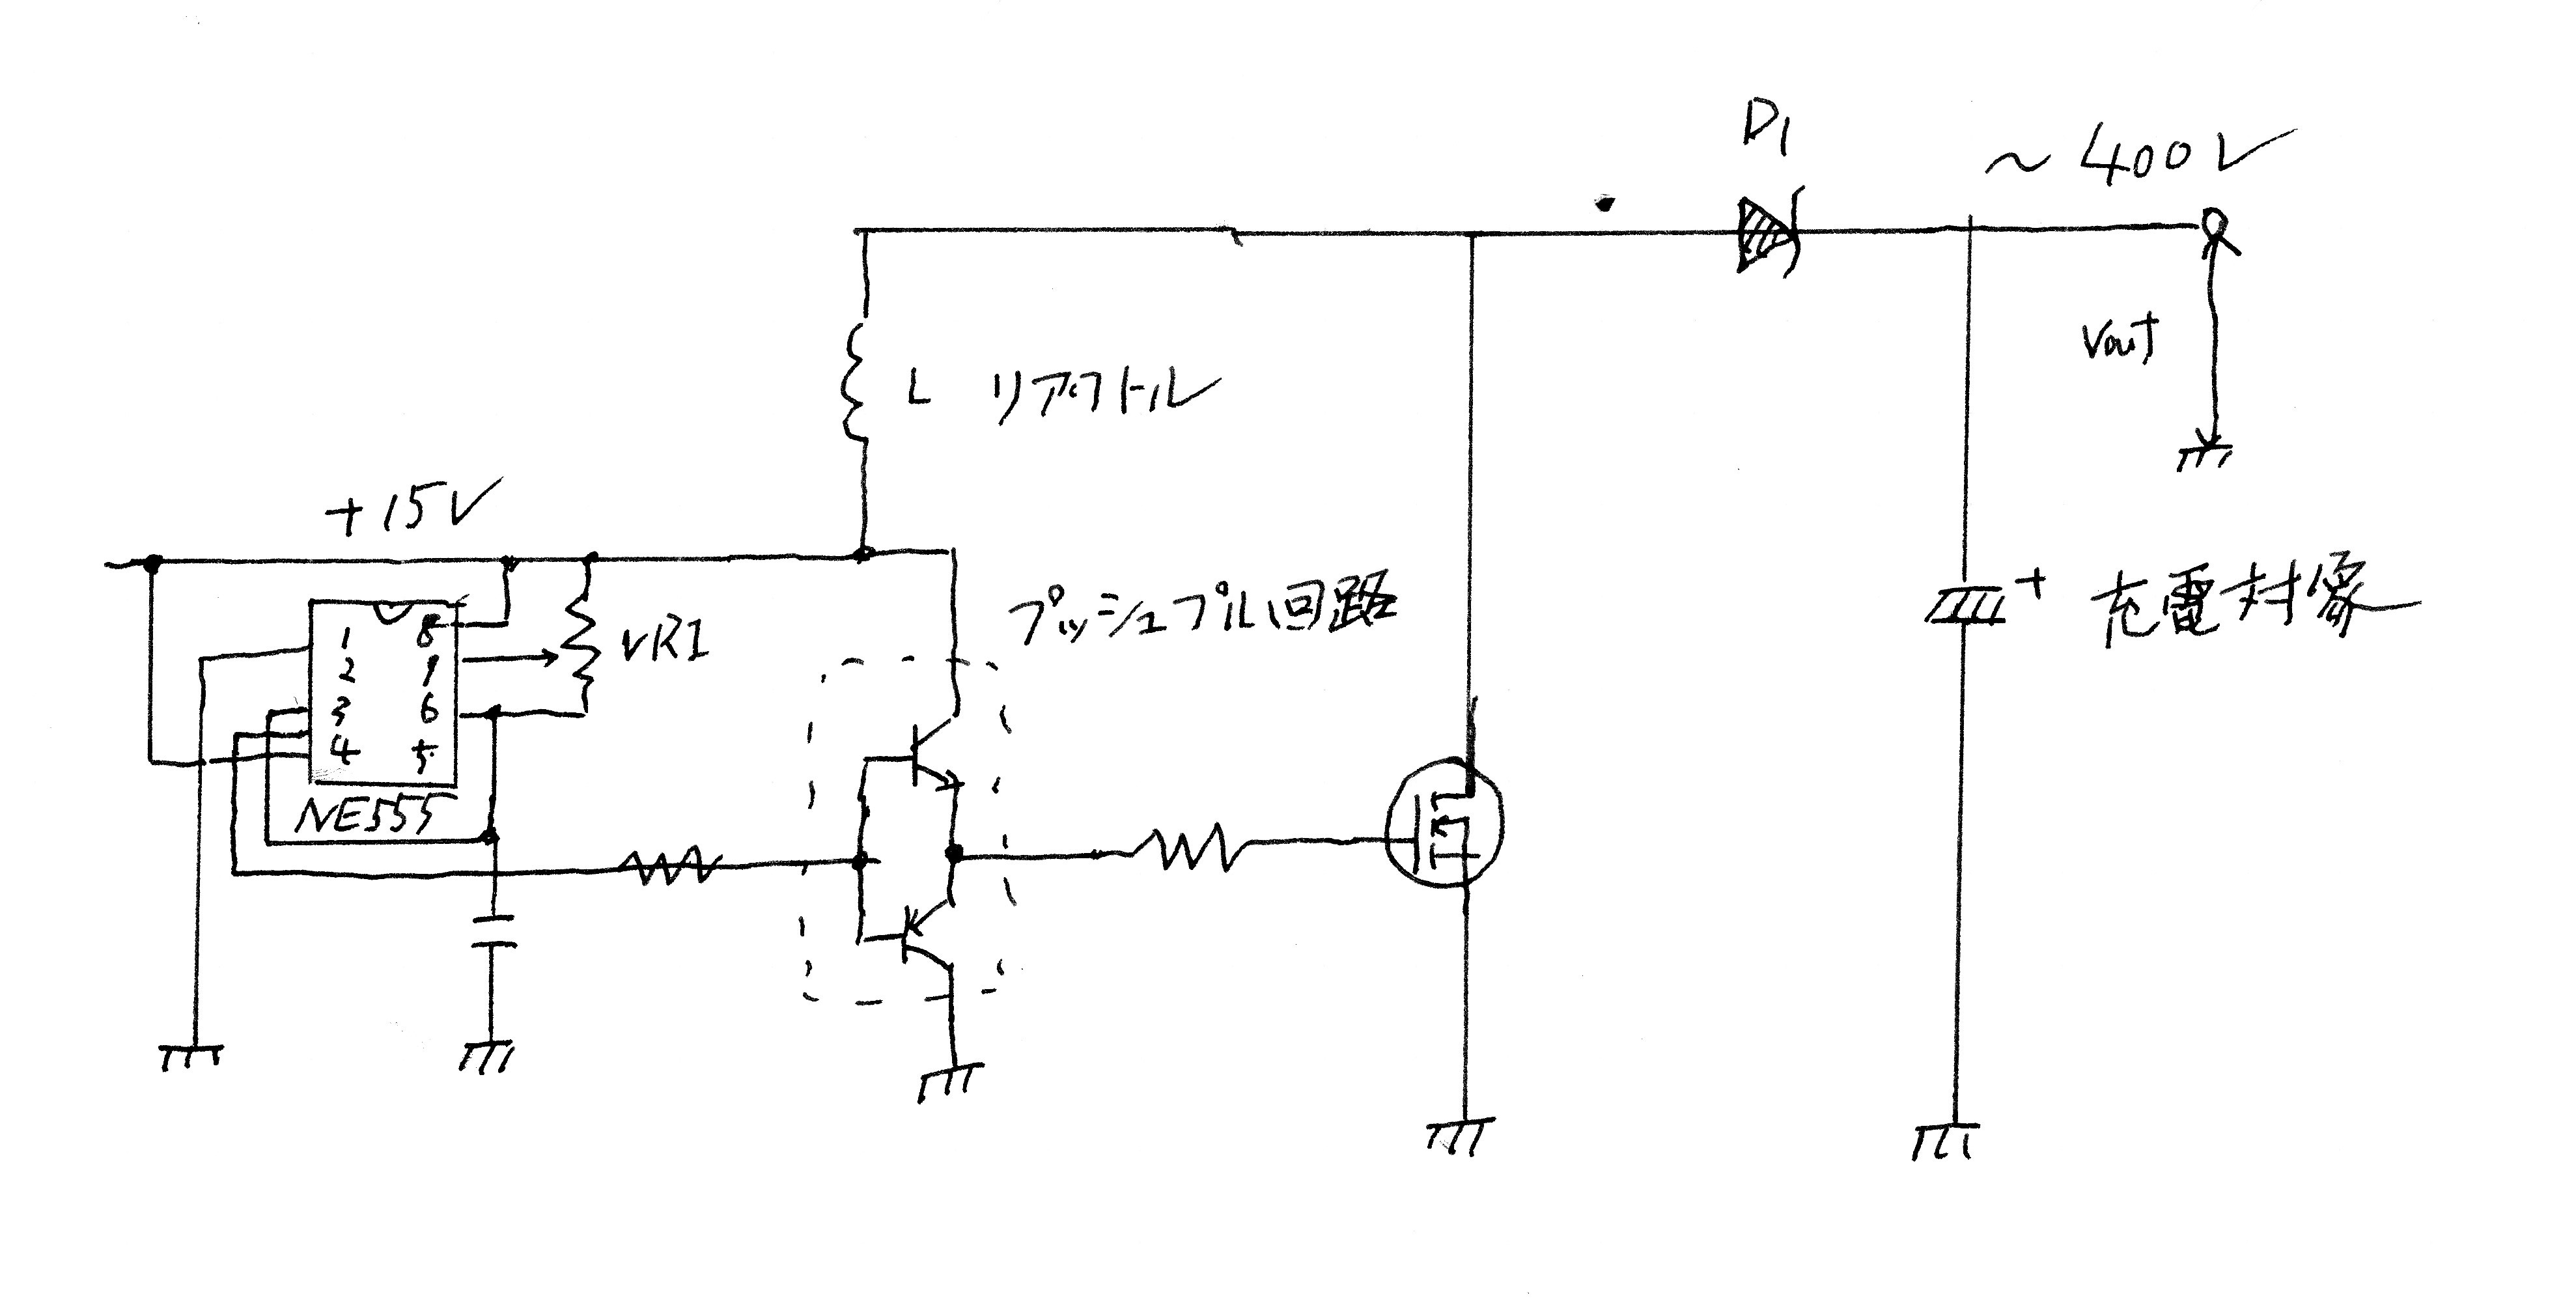 D1
～400V
Vout
L リアクトル
+15V
プッシュプル回路
+ 充電対象
VR1
1 8
2 7
3 6
4 5
NE555